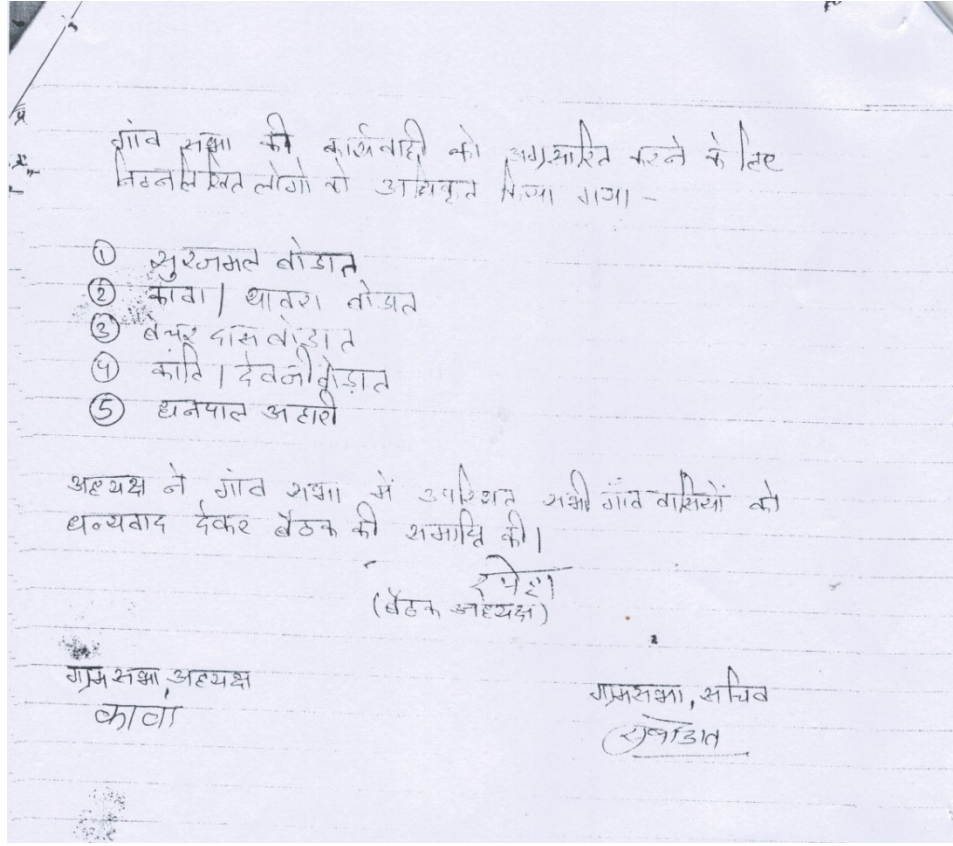 गांव सभा की कार्यवाही को अग्रसारित करने के लिए
निम्नलिखित लोगो को अधिकृत किया गया -
① सुरजमल वोडात
② कावा / थावरा वोडात
③ बेचर दास वोडात
④ कांति / देवजी वोड़ात
⑤ धनपाल अहारी
अध्यक्ष ने गांव सभा में उपस्थित सभी गांव वासियों को
धन्यवाद देकर बैठक की समाप्ति की।
(बैठक अध्यक्ष)
ग्रामसभा अध्यक्ष
कावा
ग्रामसभा, सचिव